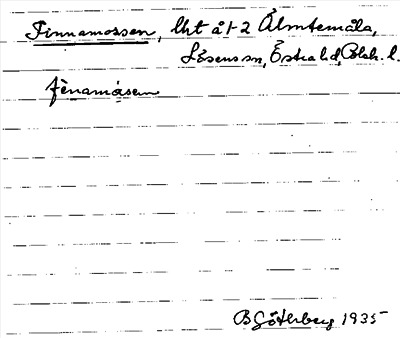 Finnamossen, lht å 1-2 Älmtemåla,
Lösens sn, Östra hd, Blek. l.
fènamåsen
B Göterberg 1935